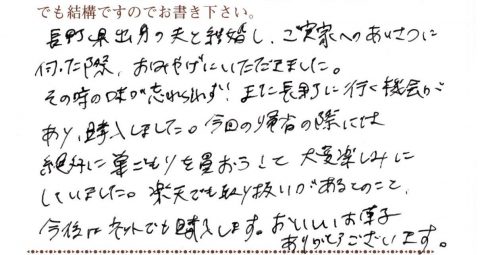 でも結構ですのでお書き下さい。
長野県出身の夫と結婚し、ご実家へのあいさつに
行った際、おみやげにいただきました。
その時の味が忘れられず!また長野に行く機会が
あり、購入しました。今回の帰省の際には
絶対に巣ごもりを買おうって大変楽しみに
していました。楽天でも取り扱いがあるとのこと、
今後はネットでも購入します。おいしいお菓子
ありがとうございます。